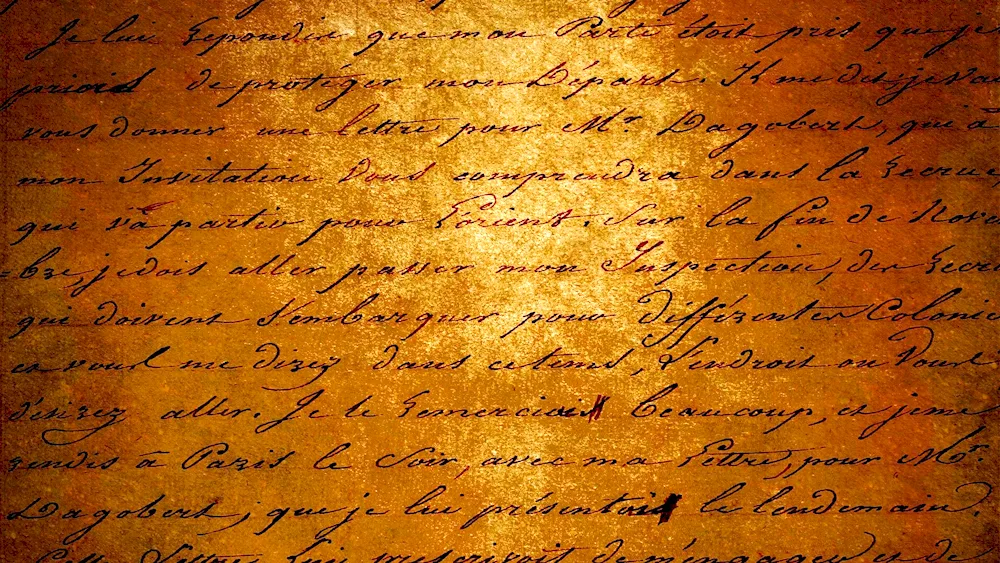 Je lui Repondis que mon Parti étoit pris que je
priois de protéger mon Départ. Il me dit, je va
vous donner une lettre pour Mr. Dagobert, qui à
mon Invitation Vous comprendra dans la Recrue,
qui va partir pour L'orient. Sur la fin de Novem
=bre, je dois aller passer mon Inspection, des Recrues
qui doivent s'embarquer pour différentes Colonie
et vous me direz dans ce tems, L'endroit ou Vous
désirez aller. Je le Remerciais beaucoup, et je me
rendis à Paris le Soir, avec ma Lettre, pour Mr.
Dagobert, que je lui présentais le lendemain.
Cette Lettre Lui prescrivoit de m'engager et de